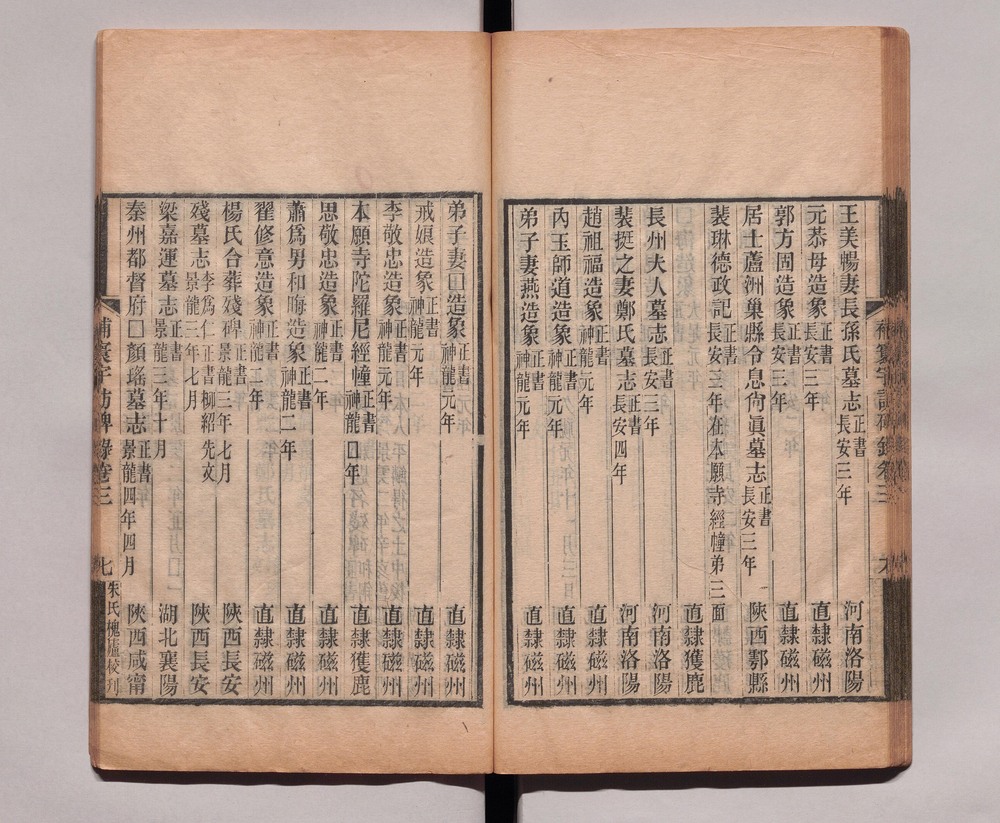 王美暢妻長孫氏墓志 正書 長安三年 河南洛陽
元恭母造象 正書 長安三年 直隸磁州
郭方固造象 正書 長安三年 直隸磁州
居士蘆洲巢縣令息尙眞墓志 正書 長安三年 陝西鄠縣
裴琳德政記 正書 長安三年在本願寺經幢弟三面 直隸獲鹿
長州夫人墓志 正書 長安三年 河南洛陽
裴挺之妻鄭氏墓志 正書 長安四年 河南洛陽
趙祖福造象 正書 神龍元年 直隸磁州
內玉師道造象 正書 神龍元年 直隸磁州
弟子妻燕造象 正書 神龍元年 直隸磁州
補寰宇訪碑錄卷三
弟子妻□造象 正書 神龍元年 直隸磁州
戒娘造象 正書 神龍元年 直隸磁州
李敬忠造象 正書 神龍元年 直隸磁州
本願寺陀羅尼經幢 正書 神龍□年 直隸獲鹿
思敬忠造象 正書 神龍二年 直隸磁州
蕭爲男和晦造象 正書 神龍二年 直隸磁州
翟修意造象 正書 神龍二年 直隸磁州
楊氏合葬殘碑 正書 景龍三年七月 陝西長安
殘墓志 李爲仁正書柳紹先文 景龍三年七月 陝西長安
梁嘉運墓志 正書 景龍三年十月 湖北襄陽
秦州都督府□顏瑤墓志 正書 景龍四年四月 陝西咸甯
補寰宇訪碑錄卷三 七 朱氏槐廬校刋